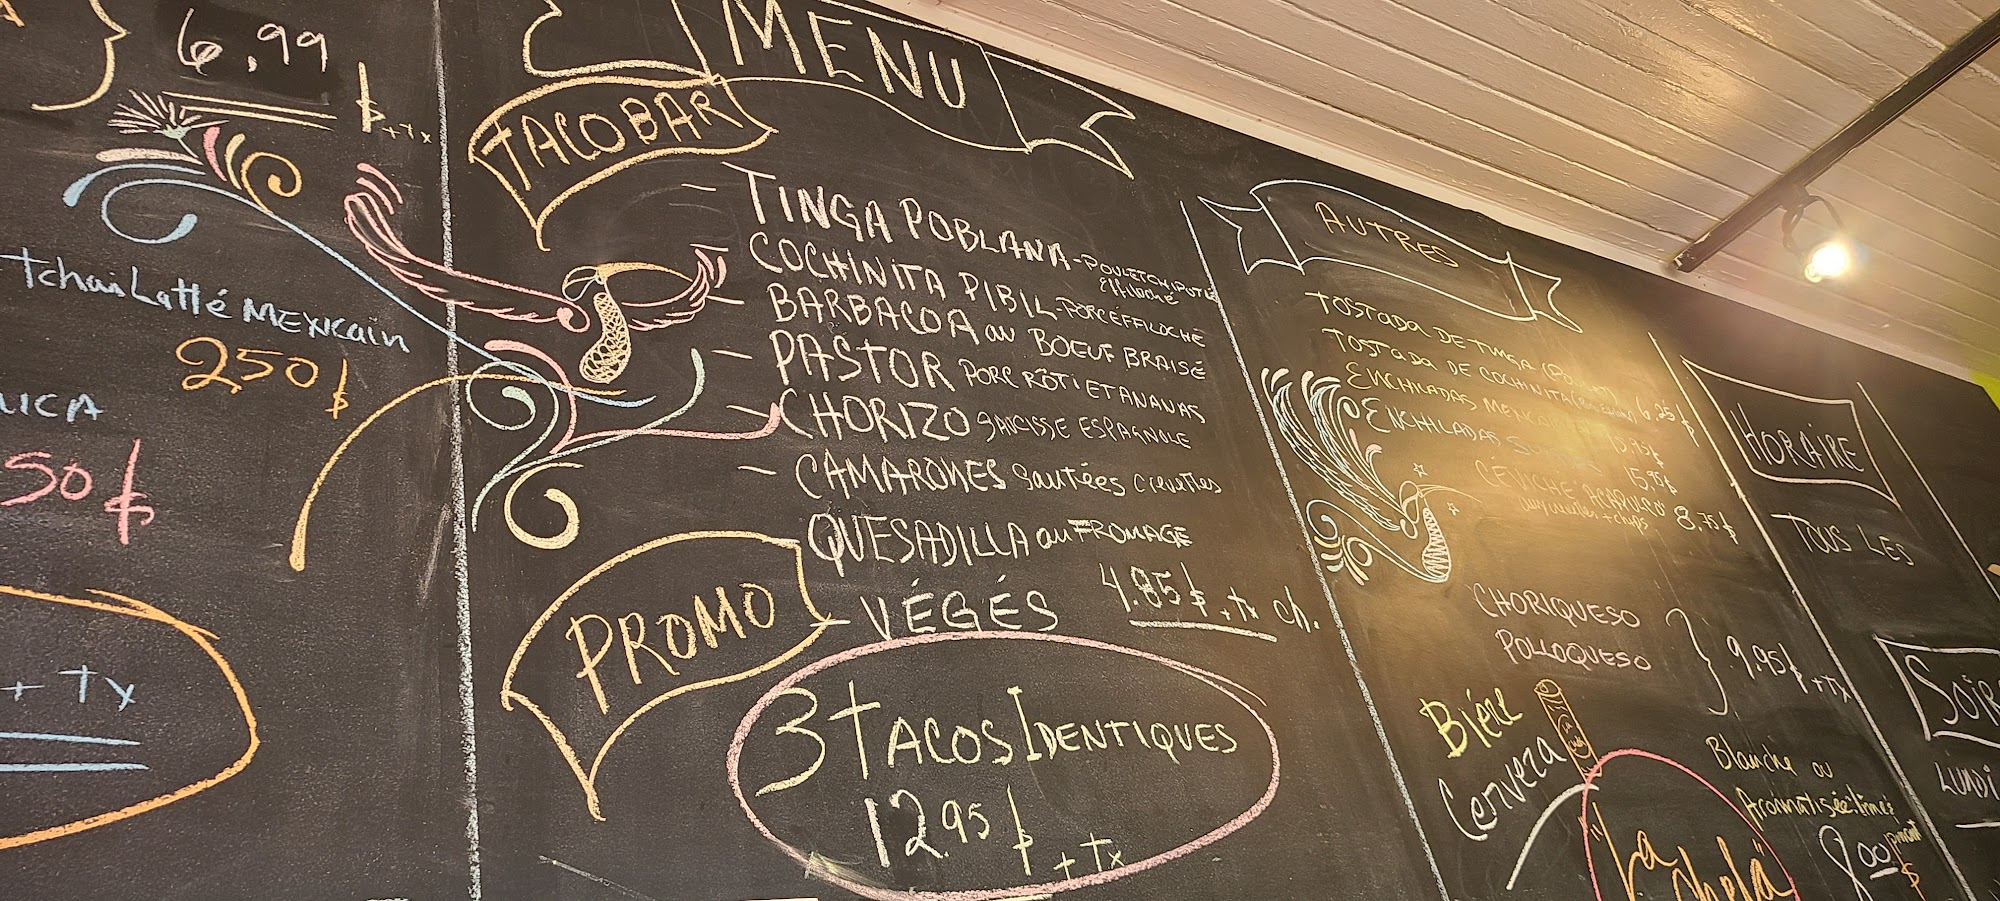 6.99 $ + Tx
tchai Latté MEXICAIN
250 $
50 $
+ Tx
MENU
TACO BAR
- TINGA POBLANA - POULET CHIPOTLE
effiloché
- COCHINITA PIBIL - PORC EFFILOCHÉ
- BARBACOA au BOEUF BRAISÉ
- PASTOR PORC RÔTI ET ANANAS
- CHORIZO SAUCISSE ESPAGNOLE
- CAMARONES Sautées crevettes
QUESADILLA au FROMAGE
- VÉGÉS 4.85 $ + Tx ch.
PROMO
3 TACOS IDENTIQUES
12.95 $ + Tx
AUTRES
TOSTADA DE TINGA
TOSTADA DE COCHINITA 6,25 $
ENCHILADAS 15.75 $
ENCHILADAS 15.95 $
CÉVICHE ACAPULCO 8,75 $
+ chips
CHORIQUESO
POLLOQUESO
9.95 $ + Tx
Bière
Cerveza
"La Chela"
Blanche ou
Aromatisée:
8.00 $
HORAIRE
TOUS LES
LUNDI